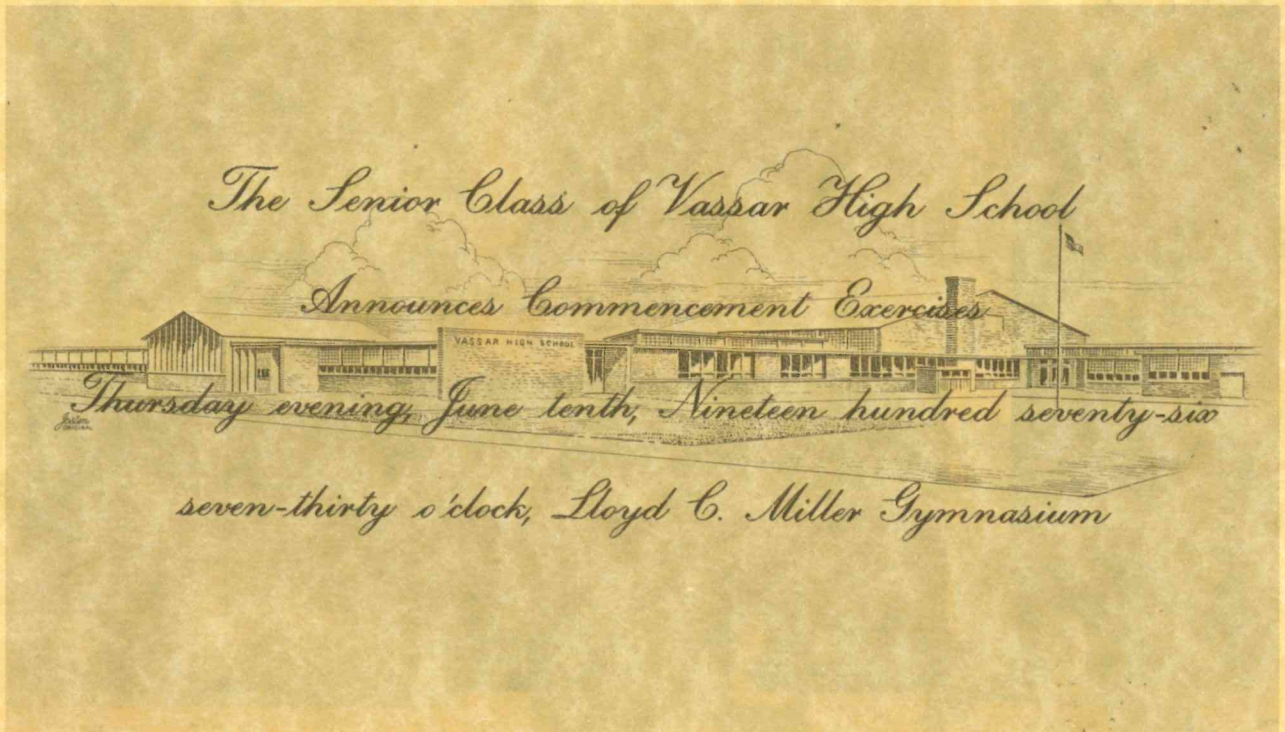 The Senior Class of Vassar High School
Announces Commencement Exercises
VASSAR HIGH SCHOOL
Thursday evening, June tenth, Nineteen hundred seventy-six
Josten
ORIGINAL
seven-thirty o'clock, Lloyd C. Miller Gymnasium